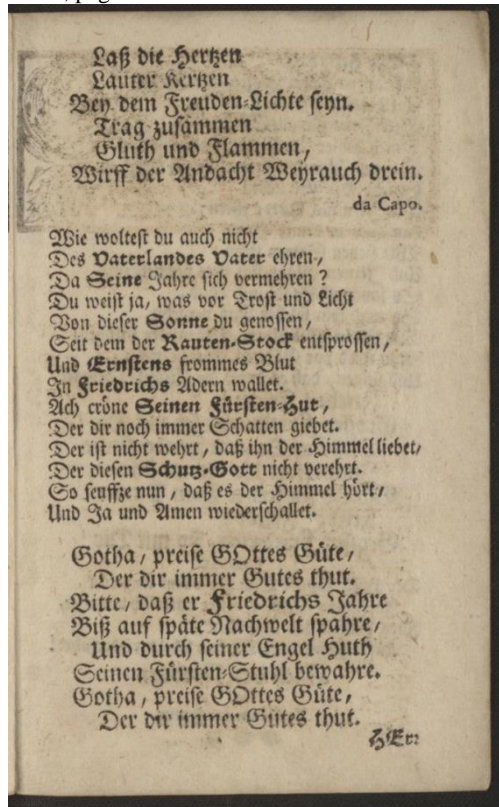 Laß die Hertzen
Lauter Kertzen
Bey dem Freuden-Lichte seyn.
Trag zusammen
Gluth und Flammen,
Wirff der Andacht Weyrauch drein.
da Capo.
Wie woltest du auch nicht
Des Vaterlandes Vater ehren,
Da Seine Jahre sich vermehren?
Du weist ja, was vor Trost und Licht
Von dieser Sonne du genossen,
Seit dem der Rauten-Stock entsprossen,
Und Ernstens frommes Blut
In Friedrichs Adern wallet.
Ach cröne Seinen Fürsten-Hut,
Der dir noch immer Schatten giebet.
Der ist nicht wehrt, daß ihn der Himmel liebet,
Der diesen Schutz-Gott nicht verehrt.
So seuffze nun, daß es der Himmel hört,
Und Ja und Amen wiederschallet.
Gotha, preise GOttes Güte,
Der dir immer Gutes thut.
Bitte, daß er Friedrichs Jahre
Biß auf späte Nachwelt spahre,
Und durch seiner Engel Huth
Seinen Fürsten-Stuhl bewahre.
Gotha, preise GOttes Güte,
Der dir immer Gutes thut.
HEr: